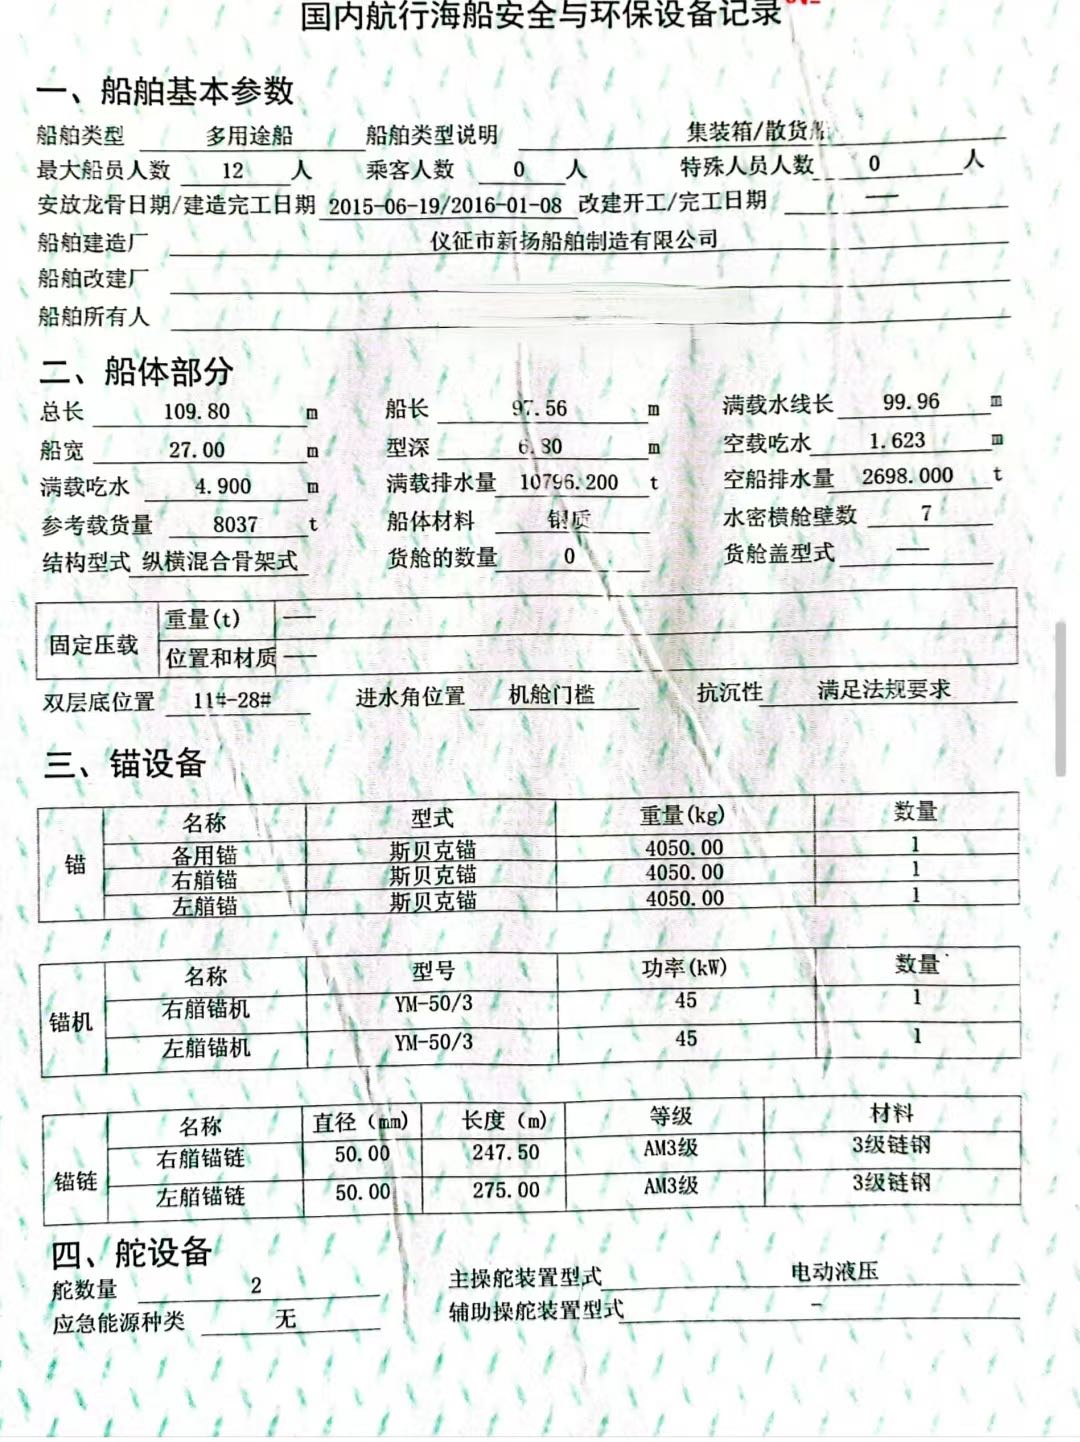 国内航行海船安全与环保设备记录
一、船舶基本参数
船舶类型 多用途船 船舶类型说明 集装箱/散货船
最大船员人数 12 人 乘客人数 0 人 特殊人员人数 0 人
安放龙骨日期/建造完工日期 2015-06-19/2016-01-08 改建开工/完工日期 —
船舶建造厂 仪征市新扬船舶制造有限公司
船舶改建厂
船舶所有人
二、船体部分
总长 109.80 m 船长 97.56 m 满载水线长 99.96 m
船宽 27.00 m 型深 6.80 m 空载吃水 1.623 m
满载吃水 4.900 m 满载排水量 10796.200 t 空船排水量 2698.000 t
参考载货量 8037 t 船体材料 钢质 水密横舱壁数 7
结构型式 纵横混合骨架式 货舱的数量 0 货舱盖型式 —
固定压载 重量(t) —
位置和材质 —
双层底位置 11#-28# 进水角位置 机舱门槛 抗沉性 满足法规要求
三、锚设备
锚 名称 型式 重量(kg) 数量
备用锚 斯贝克锚 4050.00 1
右艏锚 斯贝克锚 4050.00 1
左艏锚 斯贝克锚 4050.00 1
锚机 名称 型号 功率(kW) 数量
右艏锚机 YM-50/3 45 1
左艏锚机 YM-50/3 45 1
锚链 名称 直径（mm） 长度（m） 等级 材料
右艏锚链 50.00 247.50 AM3级 3级链钢
左艏锚链 50.00 275.00 AM3级 3级链钢
四、舵设备
舵数量 2 主操舵装置型式 电动液压
应急能源种类 无 辅助操舵装置型式 -